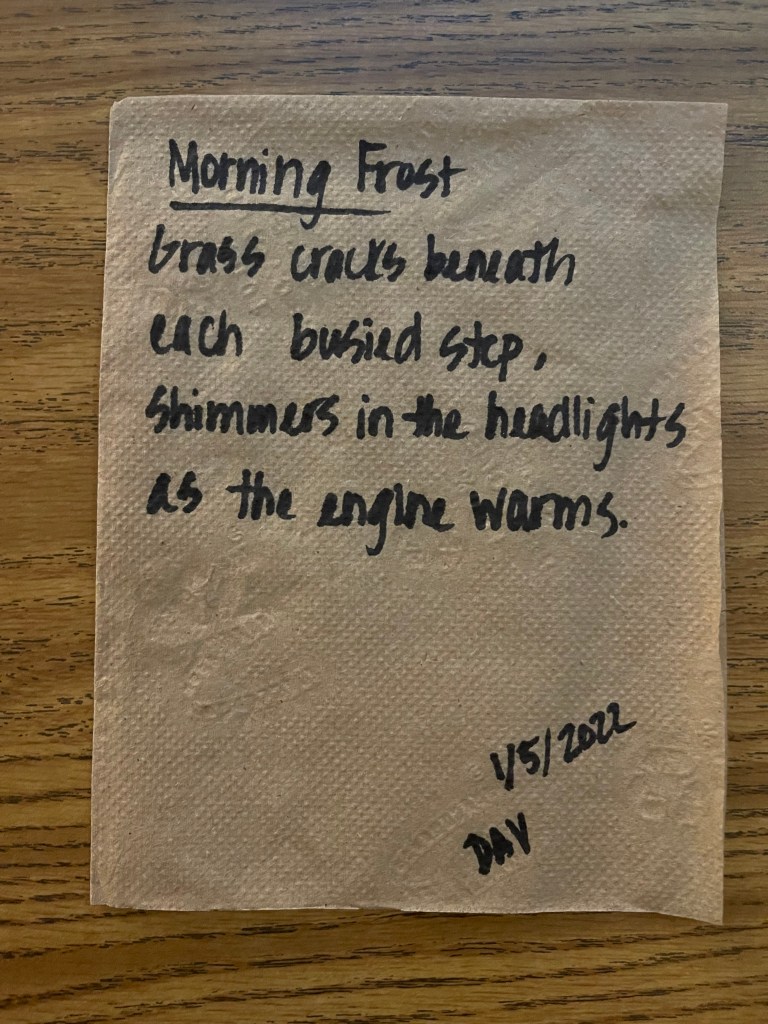 Morning Frost
Grass cracks beneath
each busied step,
shimmers in the headlights
as the engine warms.
1/5/2022
DAV